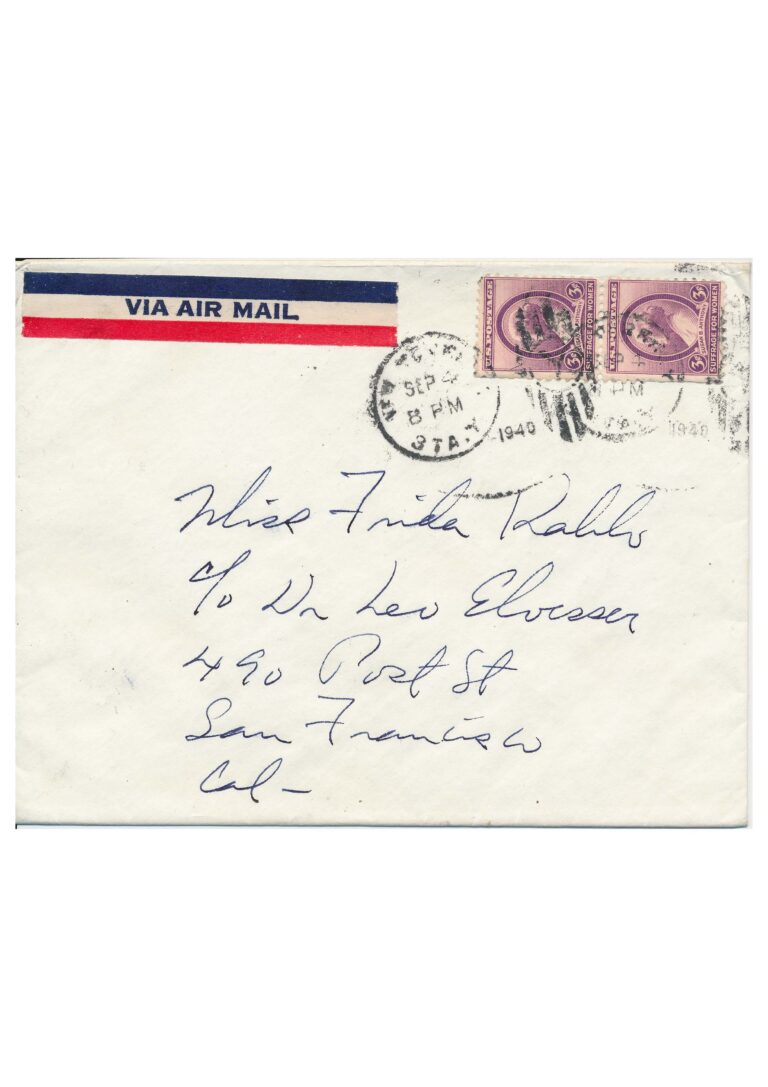 VIA AIR MAIL
U.S. POSTAGE
3¢
3¢
SUFFRAGE FOR WOMEN
U.S. POSTAGE
3¢
3¢
SUSAN B. ANTHONY
SUFFRAGE FOR WOMEN
SEP 4
8 PM
STA.
1940
PM
1940
Miss Frida Kahlo
c/o Dr Leo Eloesser
490 Post St
San Francisco
Cal –